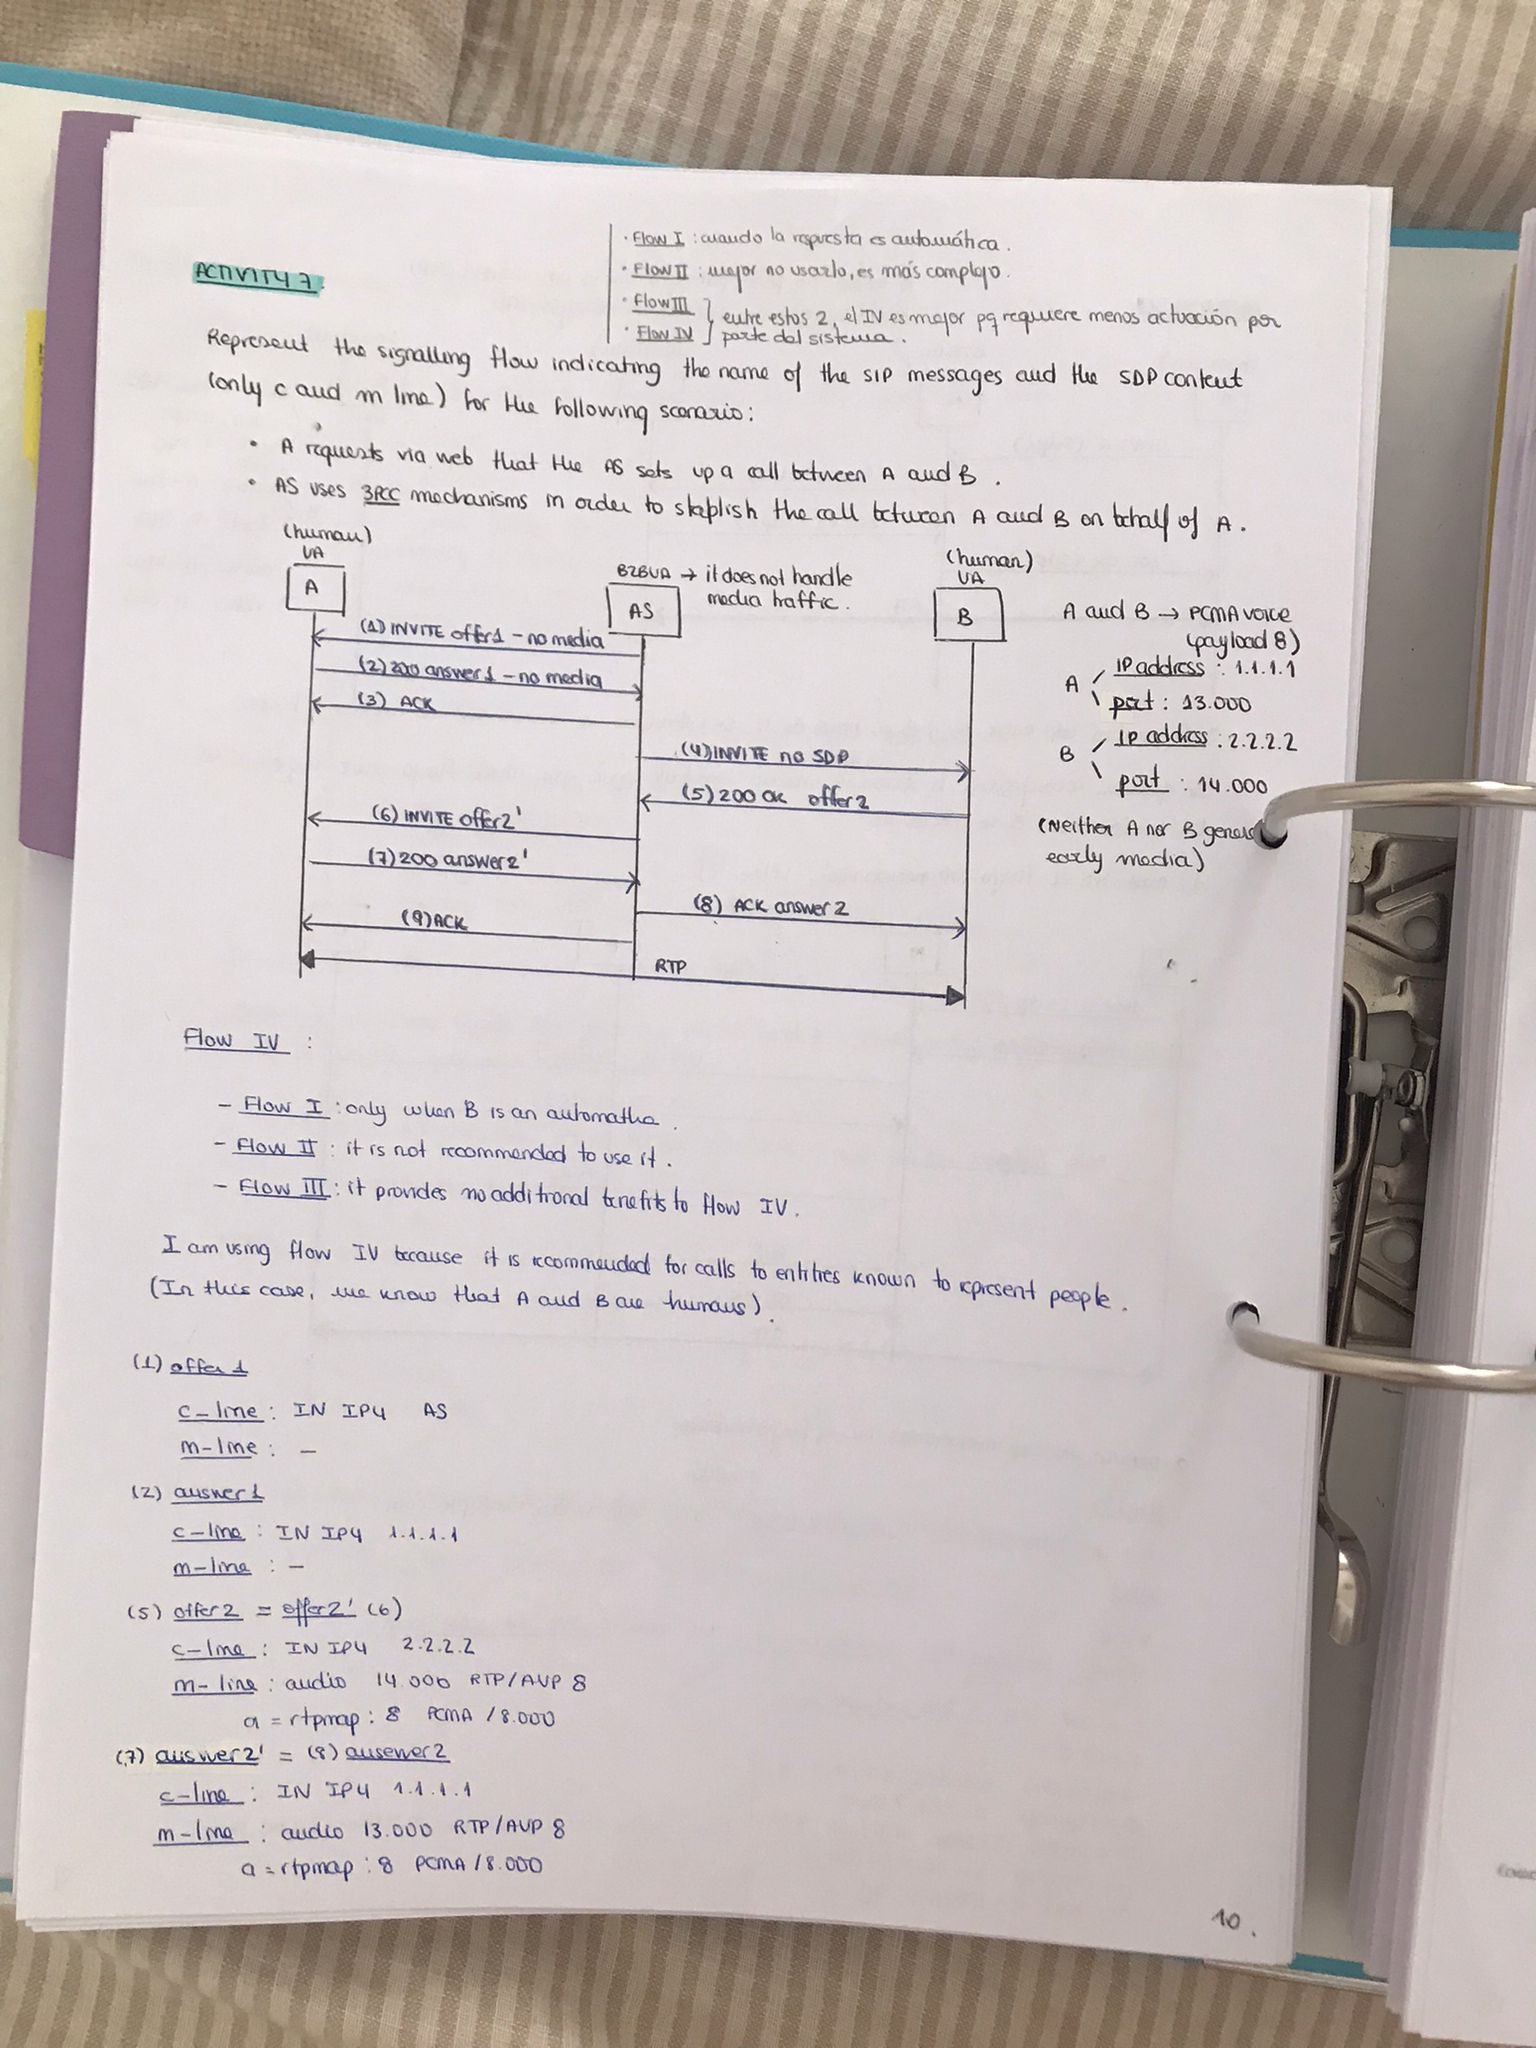 · Flow I : cuando la respuesta es automática.
· Flow II : mejor no usarlo, es más complejo.
· Flow III
· Flow IV
entre estos 2, el IV es mejor pq requiere menos actuación por
parte del sistema.
ACTIVITY 7.
Represent the signalling flow indicating the name of the SIP messages and the SDP content
(only c and m line) for the following scenario:
• A requests via web that the AS sets up a call between A and B.
• AS uses 3PCC mechanisms in order to stablish the call between A and B on behalf of A.
(human)
UA
A
B2BUA → it does not handle
media traffic.
AS
(human)
UA
B
A and B → PCMA voice
(payload 8)
A
IP address : 1.1.1.1
port : 13.000
B
IP address : 2.2.2.2
port : 14.000
(Neither A nor B
early media)
(1) INVITE offer1 - no media
(2) 200 answer1 - no media
(3) ACK
(4) INVITE no SDP
(5) 200 OK offer2
(6) INVITE offer2'
(7) 200 answer2'
(8) ACK answer2
(9) ACK
RTP
Flow IV :
- Flow I : only when B is an
- Flow II : it is not recommended to use it.
- Flow III : it provides no additional benefits to flow IV.
I am using flow IV because it is recommended for calls to entities known to represent people.
(In this case, we know that A and B are humans).
(1) offer 1
c-line : IN IP4 AS
m-line : -
(2) answer 1
c-line : IN IP4 1.1.1.1
m-line : -
(5) offer 2 = offer 2' (6)
c-line : IN IP4 2.2.2.2
m-line : audio 14.000 RTP/AVP 8
a = rtpmap : 8 PCMA /8.000
(7) answer 2' = (8) ausewer 2
c-line : IN IP4 1.1.1.1
m-line : audio 13.000 RTP/AVP 8
a = rtpmap : 8 PCMA /8.000
10.